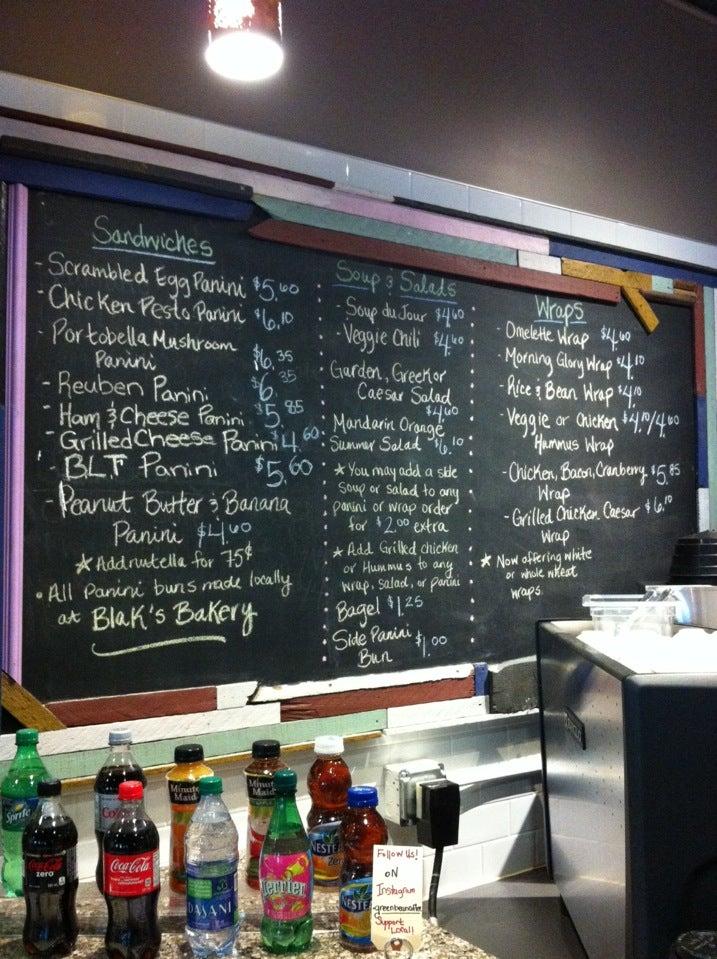 Sandwiches
- Scrambled Egg Panini $5.60
- Chicken Pesto Panini $6.10
- Portobella Mushroom
Panini $6.35
- Reuben Panini $6.35
- Ham & Cheese Panini $5.85
- Grilled Cheese Panini $4.60
- BLT Panini $5.60
- Peanut Butter & Banana
Panini $4.60
★ Add nutella for 75¢
• All Panini buns made locally
at Blak's Bakery
Soup & Salads
- Soup du Jour $4.60
- Veggie Chili $4.60
Garden, Greek or
Caesar Salad
$4.60
Mandarin Orange
Summer Salad $6.10
★ You may add a side
soup or salad to any
panini or wrap order
for $2.00 extra
★ Add Grilled chicken
or Hummus to any
wrap, salad, or panini
Bagel $1.25
Side Panini $1.00
Bun
Wraps
- Omelette Wrap $4.60
- Morning Glory Wrap $4.10
- Rice & Bean Wrap $4.10
- Veggie or Chicken $4.10/4.60
Hummus Wrap
- Chicken, Bacon, Cranberry $5.85
Wrap
- Grilled Chicken Caesar $6.10
Wrap
★ Now offering white
or whole wheat
wraps
Sprite
Coca-Cola
zero
Coca-Cola
Minute
Maid
DASANI
Minute
Maid
Perrier
NESTEA
NESTEA
Follow Us!
on
Instagram
Support
Local!